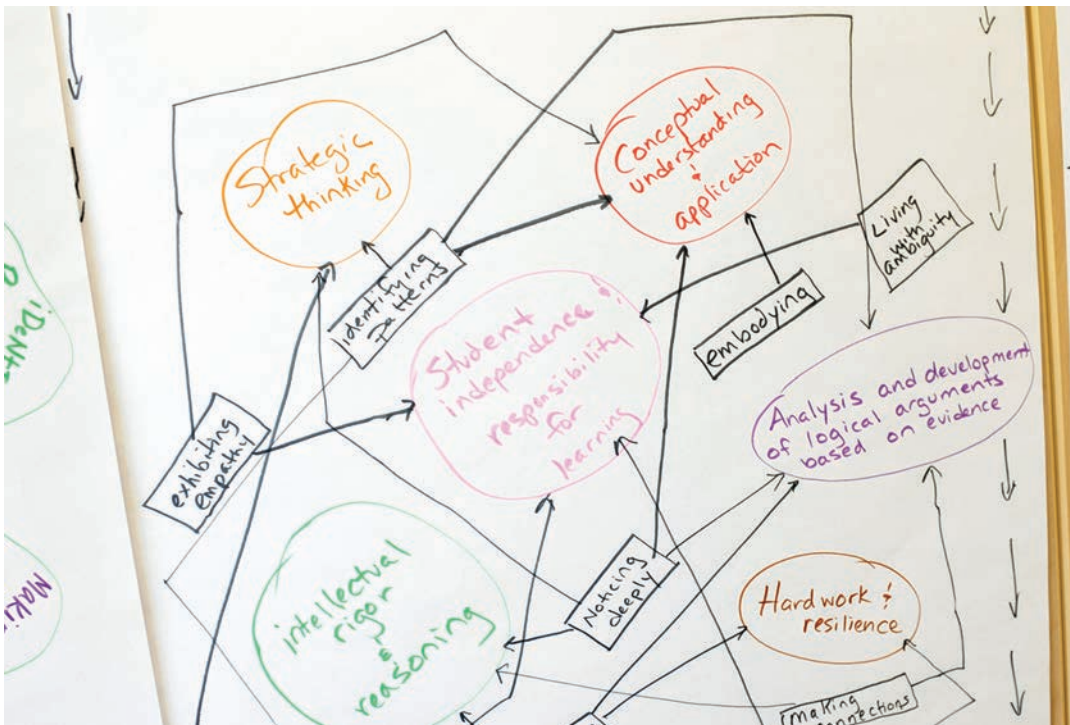 Strategic
thinking
Conceptual
understanding
&
application
Living
with
ambiguity
identifying
patterns
embodying
Student
independence &
responsibility
for
learning
Analysis and development
of logical arguments
based on evidence
exhibiting
empathy
intellectual
rigor
&
reasoning
Noticing
deeply
Hard work &
resilience
making
connections
iDent
Maki